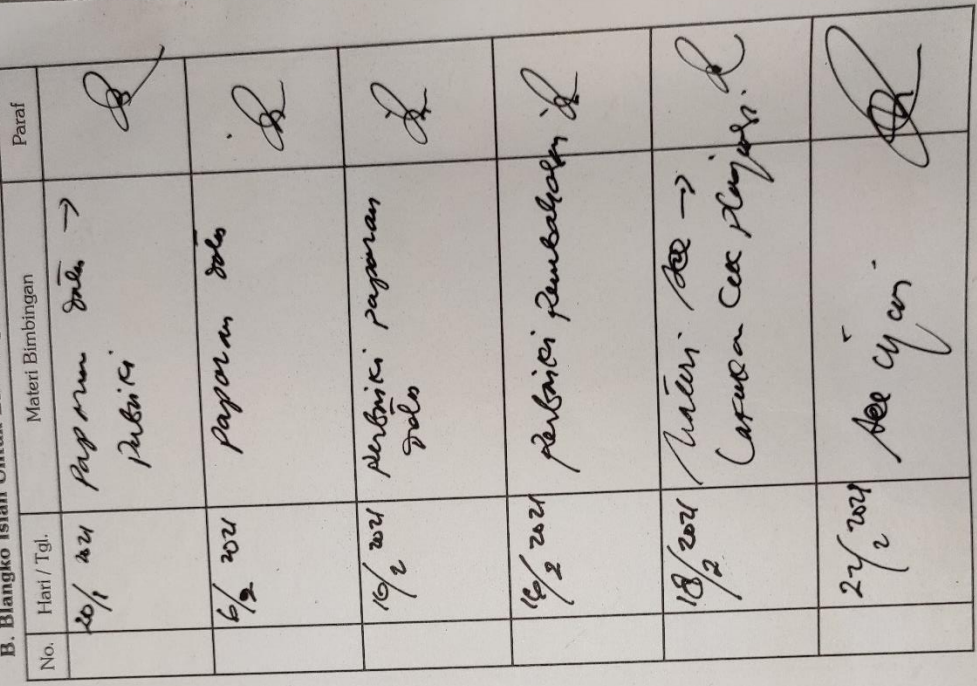 B. Blangko Isian Untuk
No. Hari / Tgl. Materi Bimbingan Paraf
20/1 2021 Paparan data →
perbaiki
6/2 2021 paparan data
10/2 2021 perbaiki paparan
data
16/2 2021 perbaiki pembahasan
18/2 2021 Materi Acc →
Lakukan Cek plagiasi
22/2 2021 Acc ujian